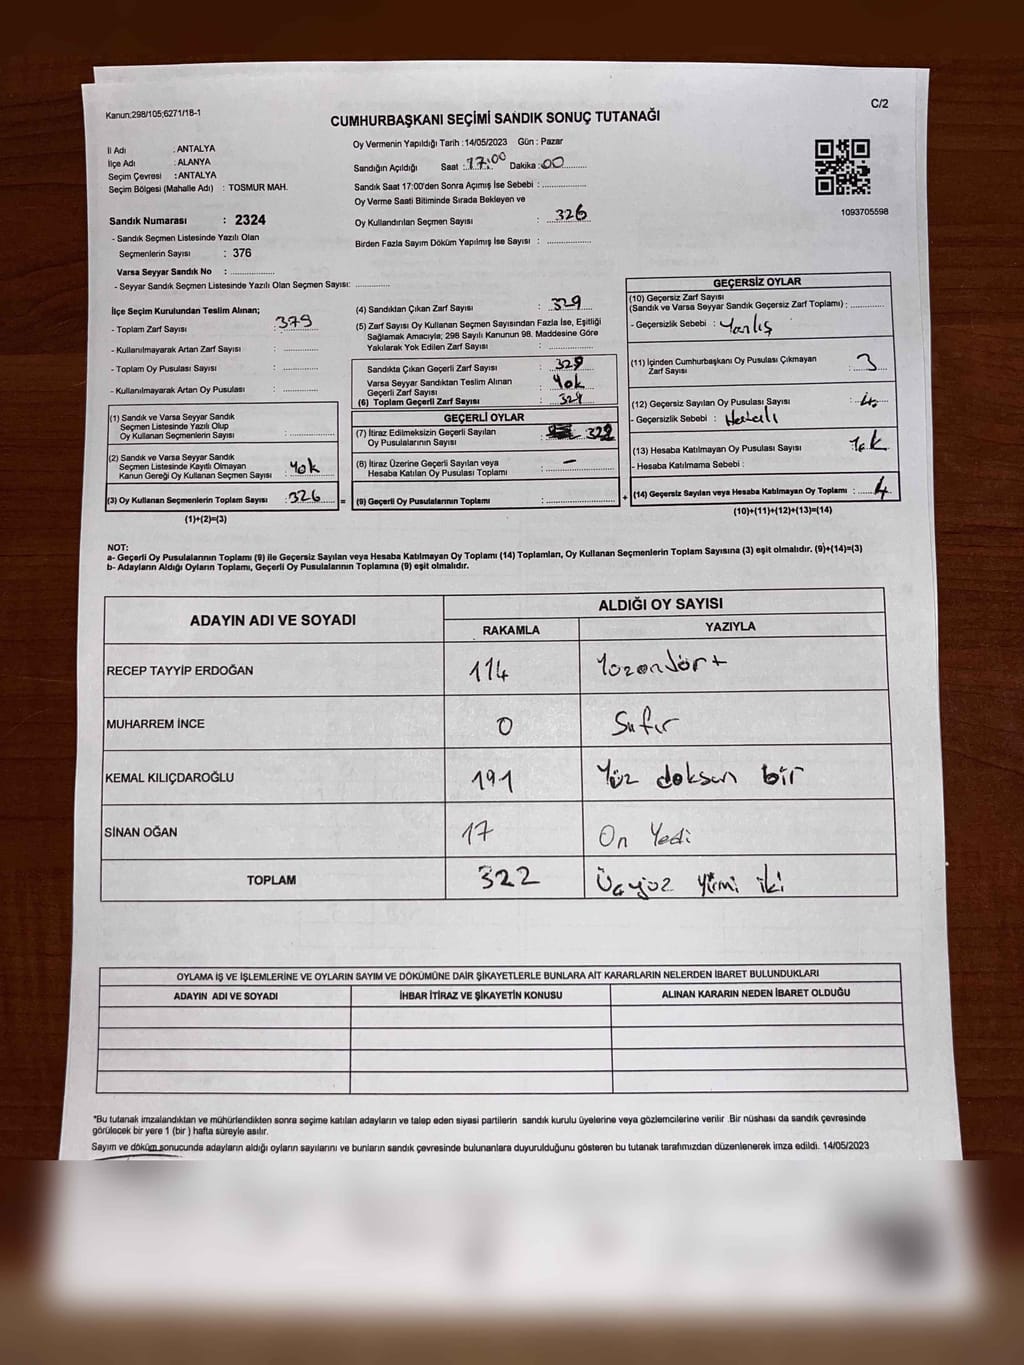 Kanun;298/105;6271/18-1
C/2
CUMHURBAŞKANI SEÇİMİ SANDIK SONUÇ TUTANAĞI
İl Adı : ANTALYA
İlçe Adı : ALANYA
Seçim Çevresi : ANTALYA
Seçim Bölgesi (Mahalle Adı) : TOSMUR MAH.
Sandık Numarası : 2324
- Sandık Seçmen Listesinde Yazılı Olan
Seçmenlerin Sayısı : 376
Varsa Seyyar Sandık No : ..............
- Seyyar Sandık Seçmen Listesinde Yazılı Olan Seçmen Sayısı: ..............
Oy Vermenin Yapıldığı Tarih : 14/05/2023 Gün : Pazar
Sandığın Açıldığı Saat : 17:00 Dakika : 00
Sandık Saat 17:00'den Sonra Açımış İse Sebebi : ..............
Oy Verme Saati Bitiminde Sırada Bekleyen ve
Oy Kullandırılan Seçmen Sayısı : 326
Birden Fazla Sayım Döküm Yapılmış İse Sayısı : ..............
1093705598
İlçe Seçim Kurulundan Teslim Alınan;
- Toplam Zarf Sayısı : 379
- Kullanılmayarak Artan Zarf Sayısı : ..............
- Toplam Oy Pusulası Sayısı : ..............
- Kullanılmayarak Artan Oy Pusulası : ..............
(1) Sandık ve Varsa Seyyar Sandık
Seçmen Listesinde Yazılı Olup
Oy Kullanan Seçmenlerin Sayısı : ..............
(2) Sandık ve Varsa Seyyar Sandık
Seçmen Listesinde Kayıtlı Olmayan
Kanun Gereği Oy Kullanan Seçmen Sayısı : Yok
(3) Oy Kullanan Seçmenlerin Toplam Sayısı : 326 =
(1)+(2)=(3)
(4) Sandıktan Çıkan Zarf Sayısı : 329
(5) Zarf Sayısı Oy Kullanan Seçmen Sayısından Fazla İse, Eşitliği
Sağlamak Amacıyla; 298 Sayılı Kanunun 98. Maddesine Göre
Yakılarak Yok Edilen Zarf Sayısı : ..............
Sandıkta Çıkan Geçerli Zarf Sayısı : 329
Varsa Seyyar Sandıktan Teslim Alınan
Geçerli Zarf Sayısı : Yok
(6) Toplam Geçerli Zarf Sayısı : 329
GEÇERLİ OYLAR
(7) İtiraz Edilmeksizin Geçerli Sayılan
Oy Pusulalarının Sayısı : 322
(8) İtiraz Üzerine Geçerli Sayılan veya
Hesaba Katılan Oy Pusulası Toplamı : –
(9) Geçerli Oy Pusulalarının Toplamı : .............. +
GEÇERSİZ OYLAR
(10) Geçersiz Zarf Sayısı
(Sandık ve Varsa Seyyar Sandık Geçersiz Zarf Toplamı) : ..............
- Geçersizlik Sebebi : Yanlış
(11) İçinden Cumhurbaşkanı Oy Pusulası Çıkmayan
Zarf Sayısı : 3
(12) Geçersiz Sayılan Oy Pusulası Sayısı : 4
- Geçersizlik Sebebi : Hatalı
(13) Hesaba Katılmayan Oy Pusulası Sayısı : Yok
- Hesaba Katılmama Sebebi :
(14) Geçersiz Sayılan veya Hesaba Katılmayan Oy Toplamı : 4
(10)+(11)+(12)+(13)=(14)
NOT:
a- Geçerli Oy Pusulalarının Toplamı (9) ile Geçersiz Sayılan veya Hesaba Katılmayan Oy Toplamı (14) Toplamları, Oy Kullanan Seçmenlerin Toplam Sayısına (3) eşit olmalıdır. (9)+(14)=(3)
b- Adayların Aldığı Oyların Toplamı, Geçerli Oy Pusulalarının Toplamına (9) eşit olmalıdır.
ADAYIN ADI VE SOYADI
ALDIĞI OY SAYISI
RAKAMLA YAZIYLA
RECEP TAYYİP ERDOĞAN 114 Yüzondört
MUHARREM İNCE 0 Sıfır
KEMAL KILIÇDAROĞLU 191 Yüz doksan bir
SİNAN OĞAN 17 On Yedi
TOPLAM 322 Üçyüz yirmi iki
OYLAMA İŞ VE İŞLEMLERİNE VE OYLARIN SAYIM VE DÖKÜMÜNE DAİR ŞİKAYETLERLE BUNLARA AİT KARARLARIN NELERDEN İBARET BULUNDUKLARI
ADAYIN ADI VE SOYADI İHBAR İTİRAZ VE ŞİKAYETİN KONUSU ALINAN KARARIN NEDEN İBARET OLDUĞU
*Bu tutanak imzalandıktan ve mühürlendikten sonra seçime katılan adayların ve talep eden siyasi partilerin sandık kurulu üyelerine veya gözlemcilerine verilir .Bir nüshası da sandık çevresinde
görülecek bir yere 1 (bir ) hafta süreyle asılır.
Sayım ve döküm sonucunda adayların aldığı oyların sayılarını ve bunların sandık çevresinde bulunanlara duyurulduğunu gösteren bu tutanak tarafımızdan düzenlenerek imza edildi. 14/05/2023